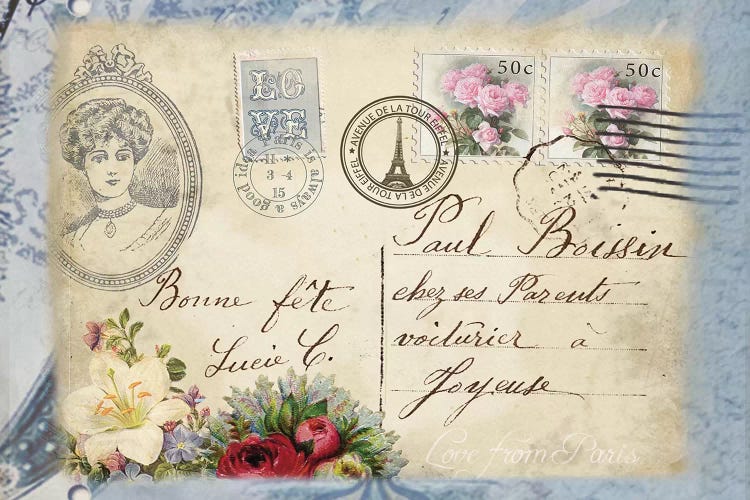 LO
VE
Paris is always a good idea
11 *
3 4
15
AVENUE DE LA TOUR EIFFEL ★ AVENUE DE LA TOUR EIFFEL ★
50c
50c
Paul Boissin
chez ses Parents
voiturier à
Joyeuse
Bonne fête
Lucie C.
Love from Paris